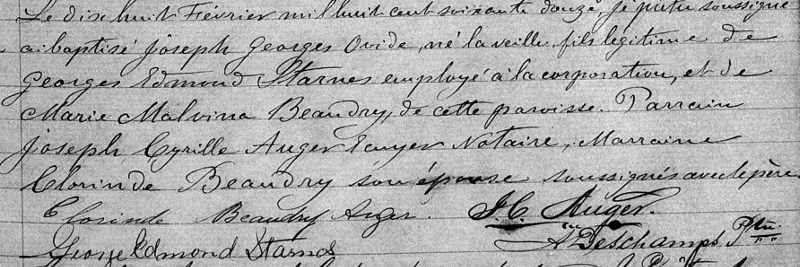 Le dix huit Février mil huit cent soixante douze, je prêtre soussigné
ai baptisé Joseph Georges Ovide, né la veille, fils légitime de
Georges Edmond Starnes employé à la corporation, et de
Marie Malvina Beaudry, de cette paroisse. Parrain
Joseph Cyrille Auger Ecuyer Notaire, Marraine
Clorinde Beaudry son épouse soussignés avec le père.
Clorinde Beaudry Auger. J. C. Auger.
George Edmond Starnes A Deschamps Ptre